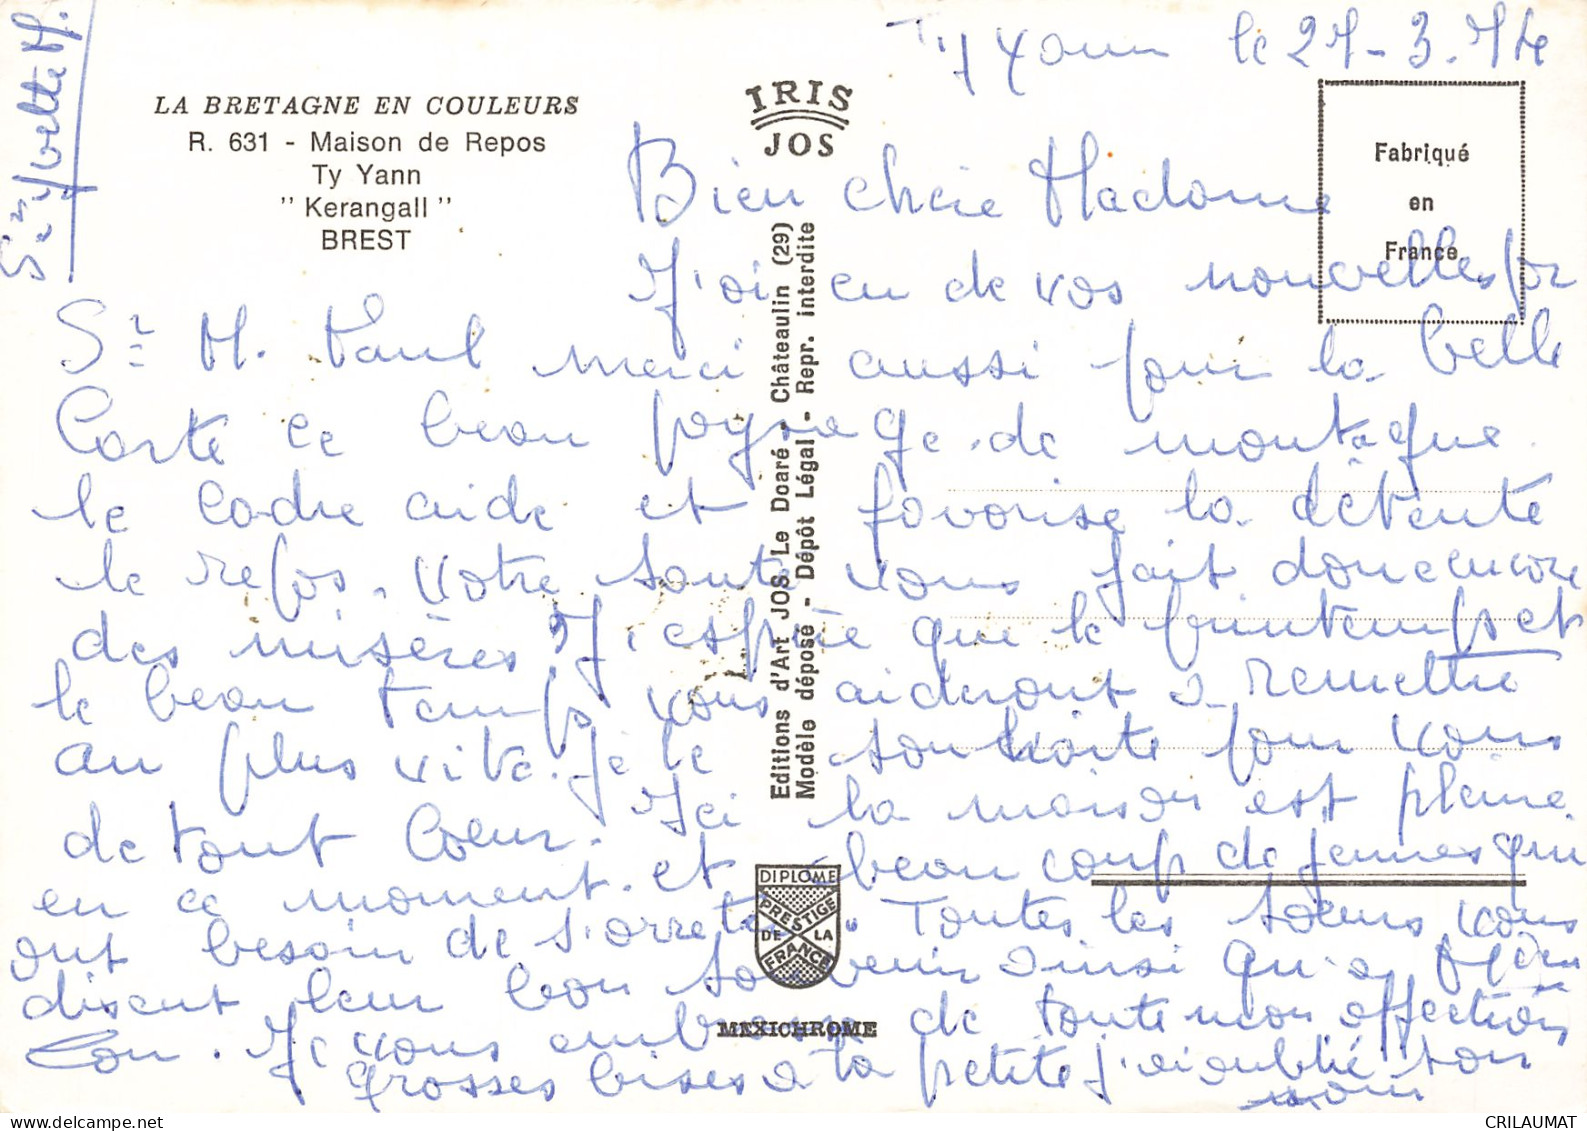 Ty Yann le 27-3.74
LA BRETAGNE EN COULEURS
R. 631 - Maison de Repos
Ty Yann
" Kerangall "
BREST
IRIS
JOS
Fabriqué
en
France
Editions d'Art JOS Le Doaré - Châteaulin (29)
Modèle déposé - Dépôt Légal - Repr. interdite
Bien chère Madame
J'ai eu de vos nouvelles par
Sr M. Paul merci aussi pour la belle
Carte ce beau paysage de montagne.
le cadre aide et favorise la détente
le repos. Votre santé vous fait donc encore
des misères, J'espère que le printemps et
le beau temps vous aideront à remettre
au plus vite. Je le souhaite pour vous
de tout Coeur. Ici la maison est pleine
en ce moment. et beaucoup de jeunes qui
ont besoin de s'arrêter. Toutes les soeurs vous
disent leur bon souvenir ainsi qu'a
Je vous embrasse de toute mon affection
grosses bises a la petite j'ai oublié son
nom
Sr Yvette M.
DIPLOME
PRESTIGE
DE LA
FRANCE
MEXICHROME
CRILAUMAT